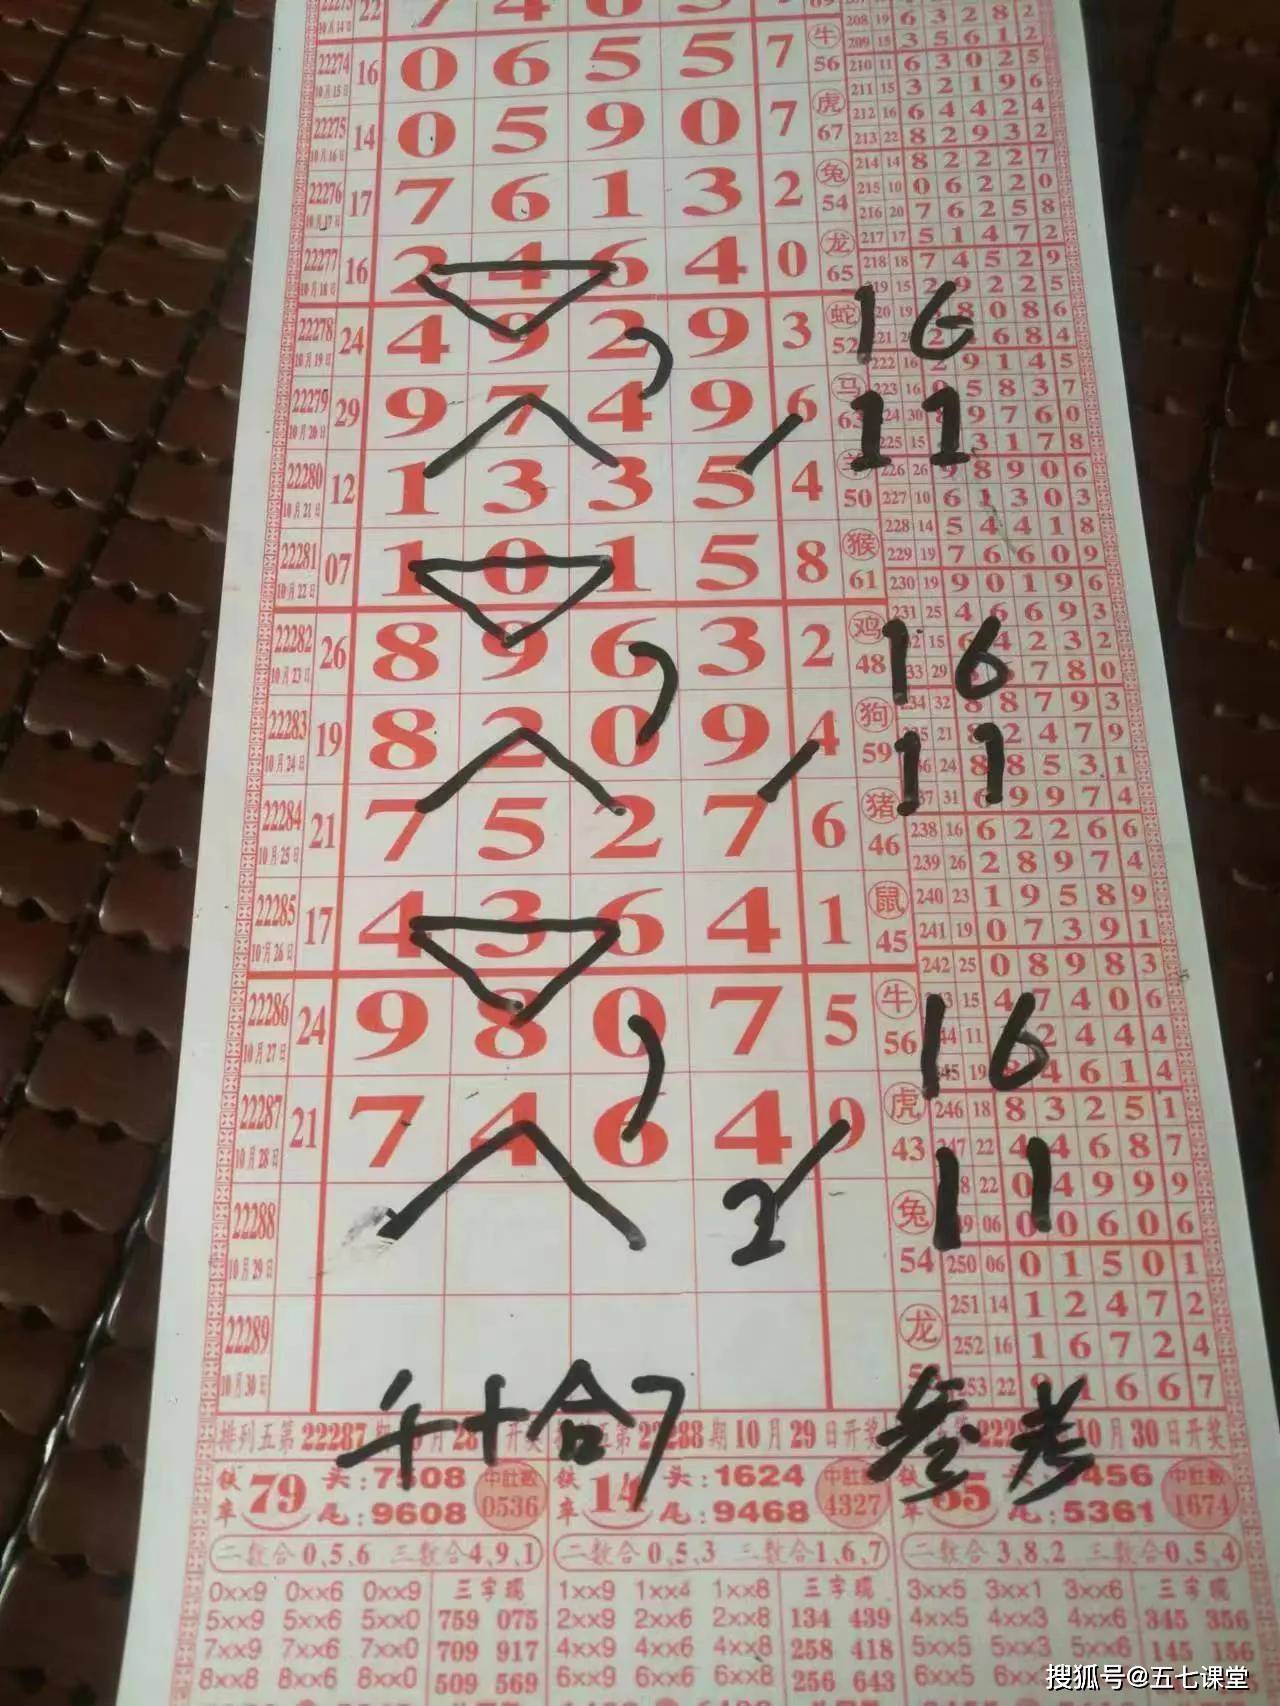 22274 16 0 6 5 5 7 牛 56
10月15日
22275 14 0 5 9 0 7 虎 67
10月16日
22276 17 7 6 1 3 2 兔 54
10月17日
22277 16 2 4 6 4 0 龙 65
10月18日
22278 24 4 9 2 9 3 蛇 52
10月19日
22279 29 9 7 4 9 6 马 63
10月20日
22280 12 1 3 3 5 4 羊 50
10月21日
22281 07 1 0 1 5 8 猴 61
10月22日
22282 26 8 9 6 3 2 鸡 48
10月23日
22283 19 8 2 0 9 4 狗 59
10月24日
22284 21 7 5 2 7 6 猪 46
10月25日
22285 17 4 3 6 4 1 鼠 45
10月26日
22286 24 9 8 0 7 5 牛 56
10月27日
22287 21 7 4 6 4 9 虎 43
10月28日
22288 2 兔 54
10月29日
22289 龙
10月30日
208 19 6 3 2 8 2
209 15 3 5 6 1 2
210 11 6 3 0 2 5
211 15 3 2 1 9 6
212 16 6 4 4 2 4
213 22 8 2 9 3 2
214 14 8 2 2 2 7
215 10 0 6 2 2 0
216 20 7 6 2 5 8
217 17 5 1 4 7 2
218 18 7 4 5 2 9
16
11
226 26 9 8 9 0 6
227 10 6 1 3 0 3
228 14 5 4 4 1 8
229 19 7 6 6 0 9
230 19 9 0 1 9 6
231 25 4 6 6 9 3
16
11
238 16 6 2 2 6 6
239 26 2 8 9 7 4
240 23 1 9 5 8 9
241 19 0 7 3 9 1
242 25 0 8 9 8 3
16
246 18 8 3 2 5 1
247 22 4 4 6 8 7
11
250 06 0 1 5 0 1
251 14 1 2 4 7 2
252 16 1 6 7 2 4
253 22 9 1 6 6 7
千十合7 参考
排列五第22287期
22288期10月29日开奖
10月30日开奖
铁车 79 头:7508 尾:9608 中肚数 0536
铁车 14 头:1624 尾:9468 中肚数 4327
456 尾:5361 中肚数 1674
二数合0,5,6 三数合4,9,1
二数合0,5,3 三数合1,6,7
二数合3,8,2 三数合0,5,4
0xx9 0xx6 0xx9 三字现
5xx9 5xx6 5xx0 759 075
7xx9 7xx6 7xx0 709 917
8xx8 8xx6 8xx0 509 569
1xx9 1xx4 1xx8 三字现
2xx9 2xx6 2xx8 134 439
4xx9 4xx6 4xx8 258 418
6xx9 6xx6 6xx8 256 643
3xx5 3xx1 3xx6 三字现
4xx5 4xx3 4xx6 345 356
5xx5 5xx3 5xx6 145 156
6xx5
搜狐号@五七课堂